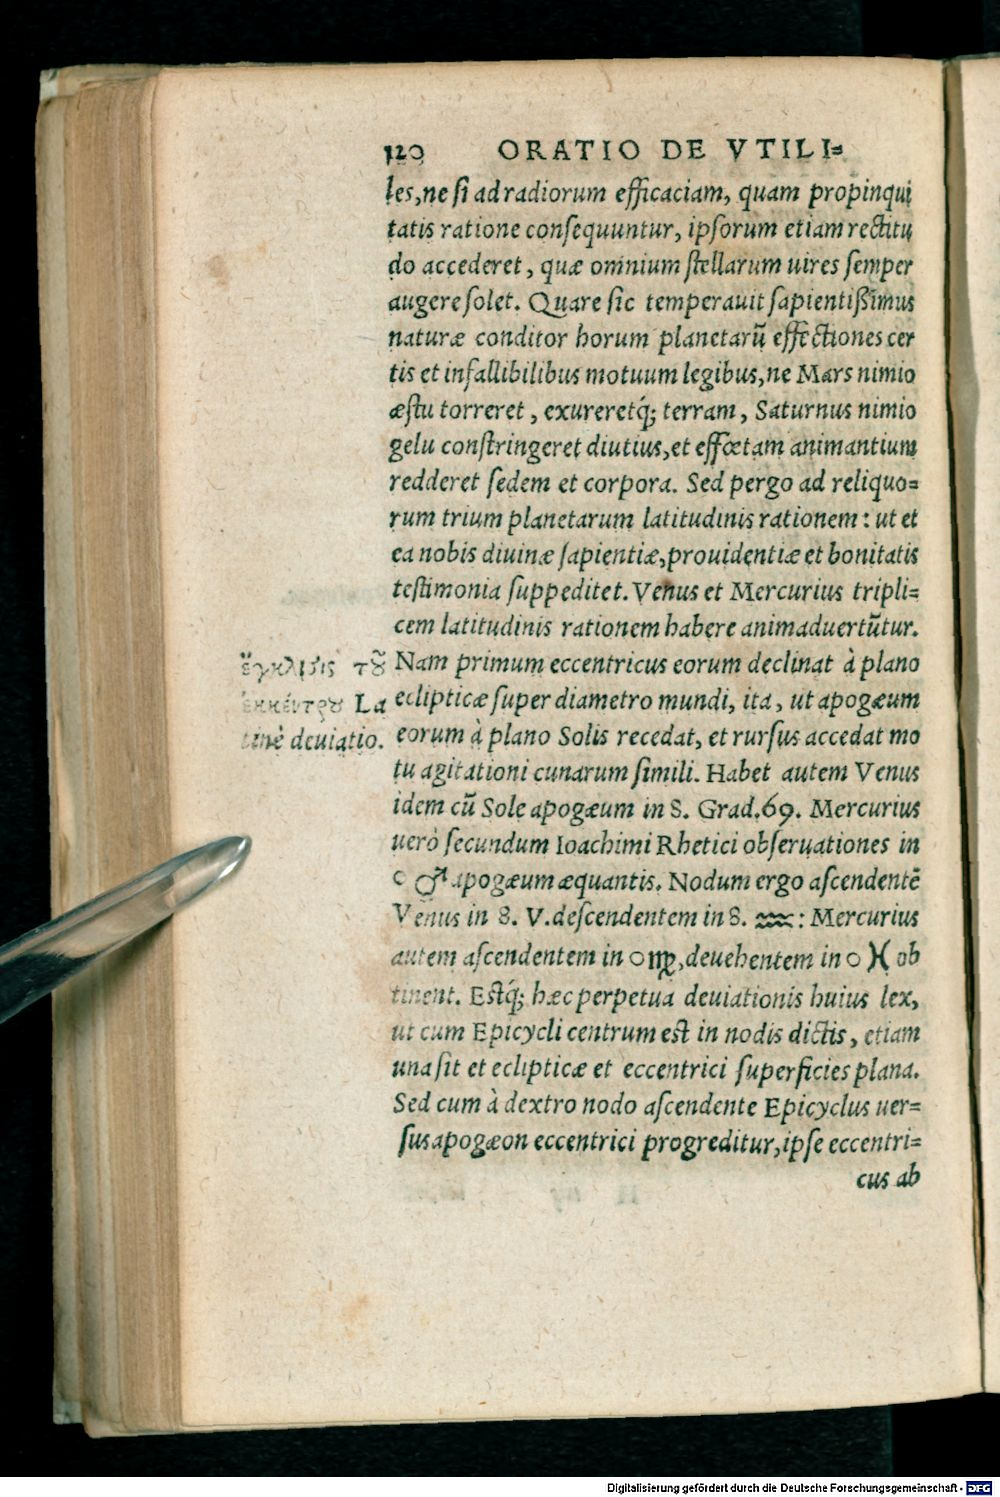 120 ORATIO DE VTILI=
les, ne si ad radiorum efficaciam, quam propinqui
tatis ratione consequuntur, ipsorum etiam rectitu
do accederet, quæ omnium stellarum uires semper
augere solet. Quare sic temperauit sapientißimus
naturæ conditor horum planetarũ effectiones cer
tis et infallibilibus motuum legibus, ne Mars nimio
æstu torreret, exureretq́; terram, Saturnus nimio
gelu constringeret diutius, et effœtam animantium
redderet sedem et corpora. Sed pergo ad reliquo=
rum trium planetarum latitudinis rationem: ut et
ea nobis diuinæ sapientiæ, prouidentiæ et bonitatis
testimonia suppeditet. Venus et Mercurius tripli=
cem latitudinis rationem habere animaduertũtur.
Nam primum eccentricus eorum declinat à plano
eclipticæ super diametro mundi, ita, ut apogæum
eorum à plano Solis recedat, et rursus accedat mo
tu agitationi cunarum simili. Habet autem Venus
idem cũ Sole apogæum in S. Grad. 69. Mercurius
uerò secundum Ioachimi Rhetici obseruationes in
♂ apogæum æquantis. Nodum ergo ascendentẽ
Venus in S. V. descendentem in S. ♒: Mercurius
autem ascendentem in ○ ♍, deuehentem in ○ ♓ ob
tinent. Estq́; hæc perpetua deuiationis huius lex,
ut cum Epicycli centrum est in nodis dictis, etiam
una sit et eclipticæ et eccentrici superficies plana.
Sed cum à dextro nodo ascendente Epicyclus uer=
sus apogæon eccentrici progreditur, ipse eccentri=
cus ab
ἔγκλισις τοῦ
ἐκκέντρου La
tinè deuiatio.
Digitalisierung gefördert durch die Deutsche Forschungsgemeinschaft - DFG